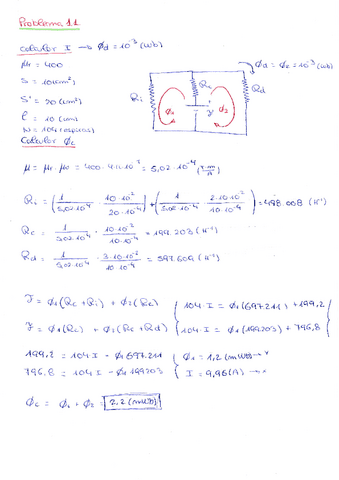 Problema 11
calcular I → ϕd = 10⁻³ (Wb)
μr = 400
S = 10 (cm²)
S' = 20 (cm²)
l = 10 (cm)
N = 104 (espiras)
Calcular ϕc
ϕd = ϕ2 = 10⁻³ (Wb)
Ri Rc Rd
ϕ1 ϕ2
μ = μr · μo = 400 · 4π·10⁻⁷ = 5,02·10⁻⁴
Ri = (1/5,02·10⁻⁴ · 10·10⁻²/20·10⁻⁴) + (1/5,02·10⁻⁴ · 2·10·10⁻²/10·10⁻⁴) = 498.008 (H⁻¹)
Rc = 1/5,02·10⁻⁴ · 10·10⁻²/10·10⁻⁴ = 199.203 (H⁻¹)
Rd = 1/5,02·10⁻⁴ · 3·10·10⁻²/10·10⁻⁴ = 597.609 (H⁻¹)
F = ϕ1(Rc + Ri) + ϕ2(Rc) { 104·I = ϕ1(697.211) + 199,2
F = ϕ1(Rc) + ϕ2(Rc + Rd) { 104·I = ϕ1(199203) + 796,8
199,2 = 104 I - ϕ1 697.211 { ϕ1 = 1,2 (mWb)
796,8 = 104 I - ϕ1 199203 { I = 9,96 (A)
ϕc = ϕ1 + ϕ2 = 2,2 (mWb)